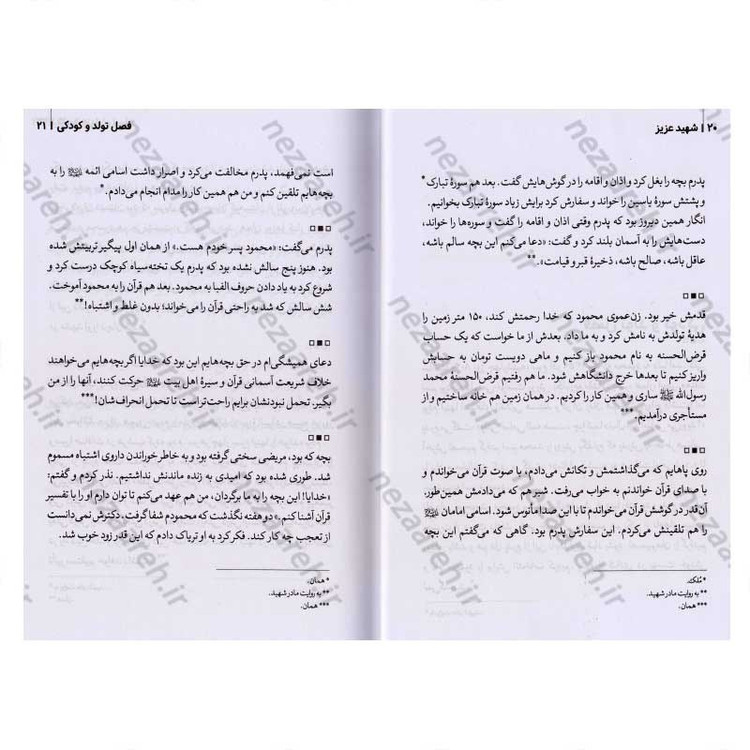 ۲۰ | شهید عزیز
پدرم بچه را بغل کرد و اذان و اقامه را در گوش‌هایش گفت. بعد هم سورهٔ تبارک*
و پشتش سورهٔ یاسین را خواند و سفارش کرد برایش زیاد سورهٔ تبارک بخوانیم.
انگار همین دیروز بود که پدرم وقتی اذان و اقامه را گفت و سوره‌ها را خواند،
دست‌هایش را به آسمان بلند کرد و گفت: «دعا می‌کنم این بچه سالم باشه،
عاقل باشه، صالح باشه، ذخیرهٔ قبر و قیامت».**
قدمش خیر بود. زن‌عموی محمود که خدا رحمتش کند، ۱۵۰ متر زمین را
هدیهٔ تولدش به نامش کرد و به ما داد. بعدش از ما خواست که یک حساب
قرض‌الحسنه به نام محمود باز کنیم و ماهی دویست تومان به حسابش
واریز کنیم تا بعدها خرج دانشگاهش شود. ما هم رفتیم قرض‌الحسنهٔ محمد
رسول‌الله ﷺ ساری و همین کار را کردیم. در همان زمین هم خانه ساختیم و از
مستأجری درآمدیم.***
روی پاهایم که می‌گذاشتمش و تکانش می‌دادم، با صوت قرآن می‌خواندم و
با صدای قرآن خواندنم به خواب می‌رفت. شیر هم که می‌دادمش همین‌طور.
آن‌قدر در گوشش قرآن می‌خواندم تا با این صدا مأنوس شود. اسامی امامان
را هم تلقینش می‌کردم. این سفارش پدرم بود. گاهی که می‌گفتم این بچه
* مُلک.
** به روایت مادر شهید.
*** همان.
فصل تولد و کودکی | ۲۱
است نمی‌فهمد، پدرم مخالفت می‌کرد و اصرار داشت اسامی ائمه را به
بچه‌هایم تلقین کنم و من هم همین کار را مدام انجام می‌دادم.*
پدرم می‌گفت: «محمود پسر خودم هست.» از همان اول پیگیر تربیتش شده
بود. هنوز پنج سالش نشده بود که پدرم یک تخته‌سیاه کوچک درست کرد و
شروع کرد به یاد دادن حروف الفبا به محمود. بعد هم قرآن را به محمود آموخت.
شش سالش که شد به راحتی قرآن را می‌خواند؛ بدون غلط و اشتباه!**
دعای همیشگی‌ام در حق بچه‌هایم این بود که خدایا اگر بچه‌هایم می‌خواهند
خلاف شریعت آسمانی قرآن و سیرهٔ اهل بیت حرکت کنند، آنها را از من
بگیر. تحمل نبودنشان برایم راحت‌تر است تا تحمل انحراف‌شان!***
بچه که بود، مریضی سختی گرفته بود و به خاطر خوراندن داروی اشتباه مسموم
شد. طوری شده بود که امیدی به زنده ماندنش نداشتیم. نذر کردم و گفتم:
«خدایا! این بچه را به ما برگردان، من هم عهد می‌کنم تا توان دارم او را با تفسیر
قرآن آشنا کنم.» دو هفته نگذشت که محمودم شفا گرفت. دکترش نمی‌دانست
از تعجب چه کار کند. فکر کرد به او تریاک دادم که این قدر زود خوب شد.
* همان.
** به روایت مادر شهید.
*** همان.
nezaareh.ir